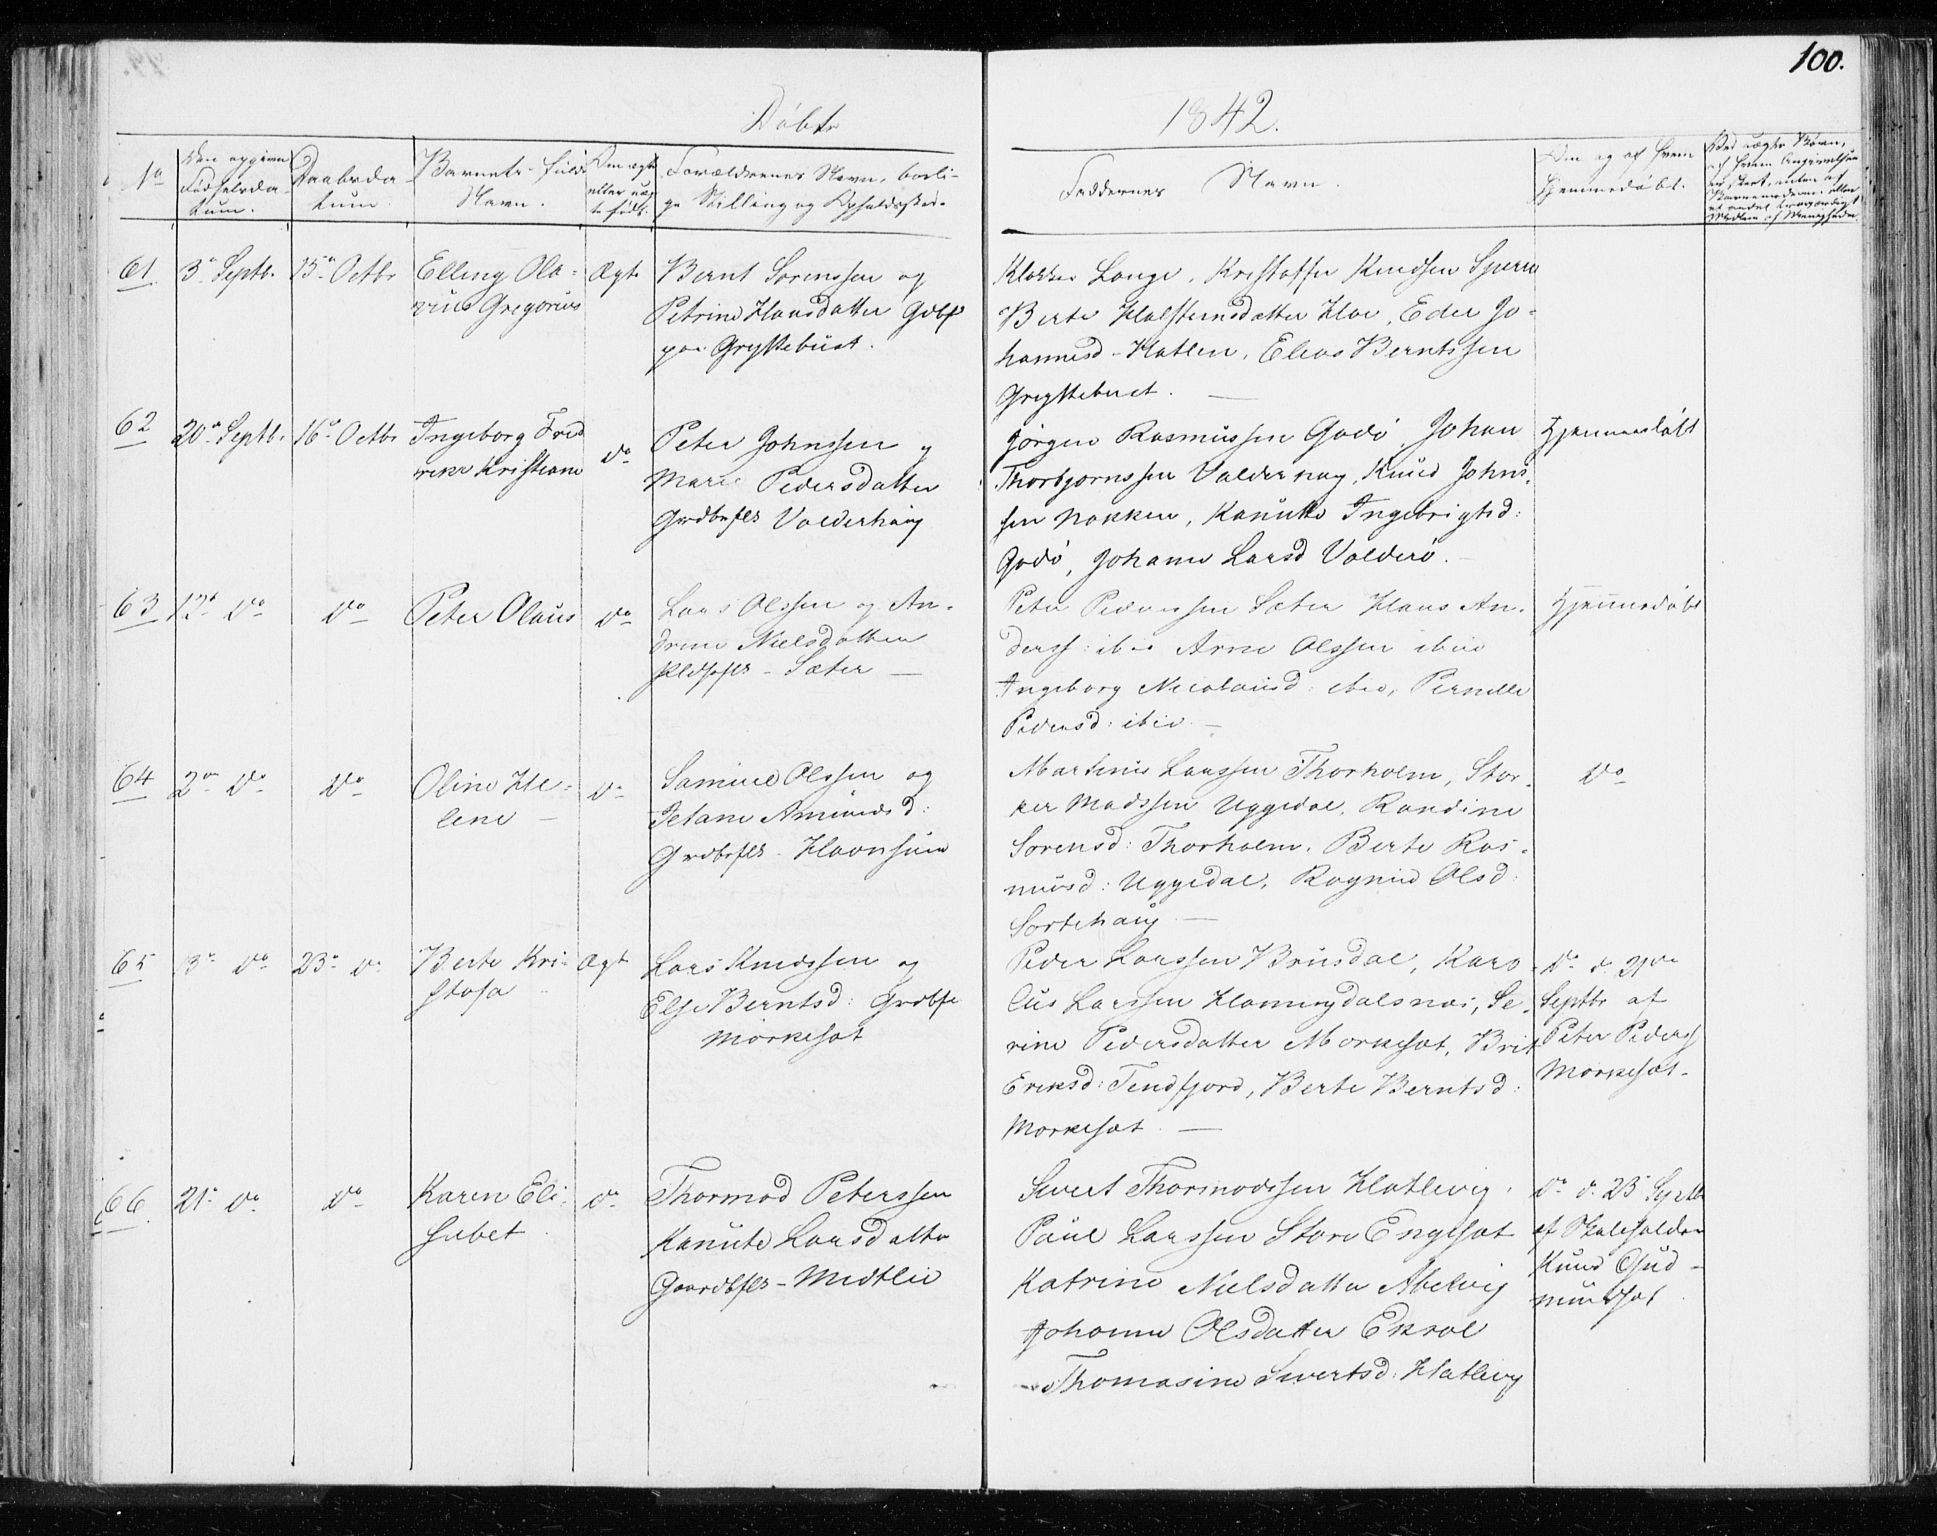 100.
Døbte
1842.
No
Den opgivne Fødselsdatum.
Daabsdatum.
Barnets fulde Navn.
Om ægte eller uægte født.
Forældrenes Navn, borlige Stilling og Opholdssted.
Faddernes Navn.
Om og af hvem hjemmedøbt.
61
3e Septb.
15de Octbr
Elling Ola-
vius Gregorius
Ægte
Bernt Sørenssen og
Petrine Hansdatter Gdbf
paa Gryttebust.
Klokker Lange, Kristoffer Knudsen
Berte Halsteinsdatter Hoe, Eder Jo-
hannesd- Hatlen, Elias Berntssen
Gryttebust.
62
20de Septb.
16de Octbr
Ingeborg Fred
rikke Kristiane
do
Peter Johnssen og
Marie Pedersdatter
Grdbrflk Valderhaug
Jørgen Rasmussen Godø, Johan
Thorbjørnssen Valderhaug, Knud Johns-
sen Nakken, Kanutte Ingebrigtsd:
Godø, Johanne Larsd Valderø.
Hjemmedøbt
63
do
do
Peter Olaus
do
Lars Olssen og An-
drine Nielsdatter
Sæter
Peter Pederssen Sæter Hans An-
derss: ibid Arne Olssen ibid
Ingeborg Nicolausd: ibid, Pernille
Pedersd: ibid.
Hjemmedøbt
64
2den do
do
Oline He-
lene
do
Samuel Olssen og
Petane Amundsd:
Grdbrflk - Havnsund
Martinus Larssen Thorholm, Stor-
ker Madssen Uggedal, Randine
Sørensd: Thorholm, Berte Ras-
musd: Uggedal, Ragnild Olsd:
Sortehaug
do
65
13de do
23de do
Berte Kri-
stofa
Ægt
Lars Knudssen og
Else Berntsd: Grdbf
Morkesæt
Peder Larssen Brusdal, Karo-
lus Larssen Hamingdalsnæs, Se-
rine Pedersdatter Morkesæt, Brit
Eriksd: Tendfjord, Berte Berntsd:
Morkesæt.
do d. 21de
Septbr af
Peter Pederss
Morkesæt
66.
21de do
do
Karen Eli-
sabet
do
Thormod Peterssen
Kanute Larsdatter
Gaardbflk - Midtlie
Sivert Thormodssen Hatlevig,
Paul Larssen Store Engesæt
Katrine Nielsdatter Abelvig
Johanne Olsdatter Ekrol
Thomasine Sivertsd: Hatlevig
do d. 23 Septb
af Skoleholder
Knud Gud-
mundsæt.